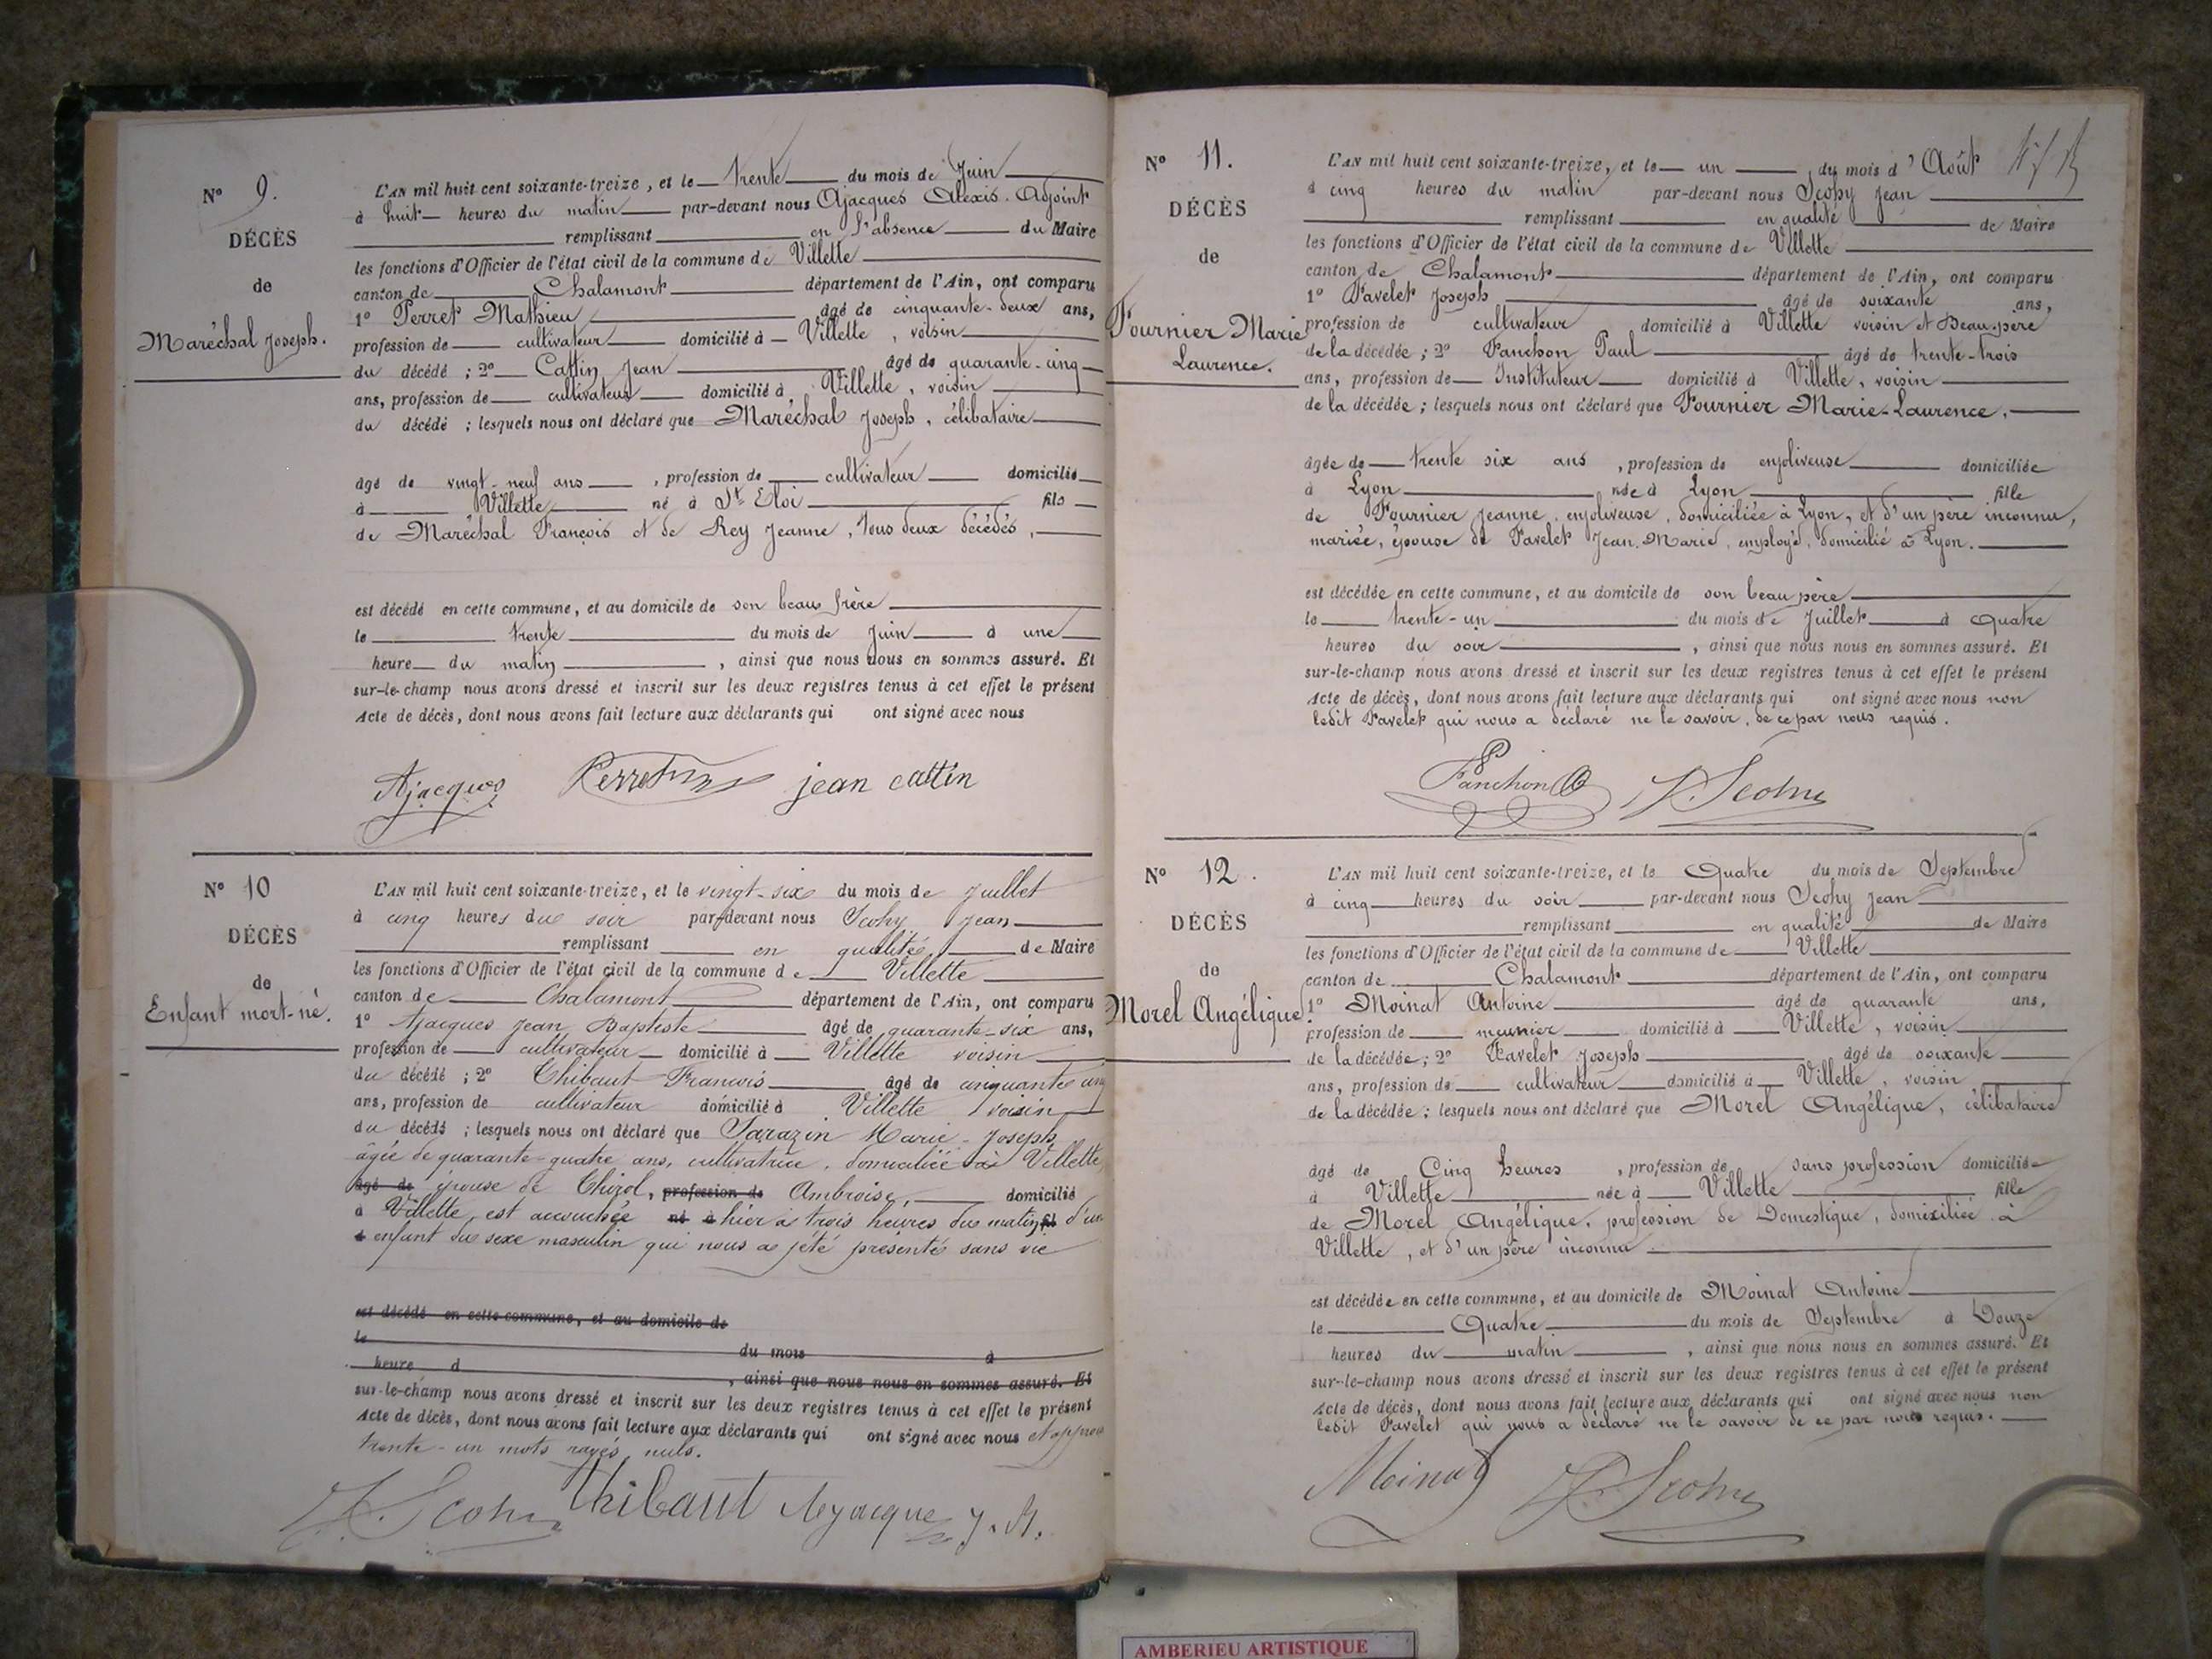 N° 9.
DÉCÈS
de
Maréchal Joseph.
L'AN mil huit cent soixante-treize, et le trente du mois de Juin
à huit heures du matin par-devant nous Ajacques Alexis. Adjoint
remplissant en l'absence du Maire
les fonctions d'Officier de l'état civil de la commune de Villette
canton de Chalamont département de l'Ain, ont comparu
1° Perret Mathieu âgé de cinquante-deux ans,
profession de cultivateur domicilié à Villette, voisin
du décédé ; 2° Cattin Jean âgé de quarante-cinq
ans, profession de cultivateur domicilié à Villette, voisin
du décédé ; lesquels nous ont déclaré que Maréchal Joseph, célibataire
âgé de vingt-neuf ans, profession de cultivateur domicilié
à Villette né à St Eloi fils
de Maréchal François et de Rey Jeanne, tous deux décédés,
est décédé en cette commune, et au domicile de son beau frère
le trente du mois de Juin à une
heure du matin, ainsi que nous nous en sommes assuré. Et
sur-le-champ nous avons dressé et inscrit sur les deux registres tenus à cet effet le présent
Acte de décès, dont nous avons fait lecture aux déclarants qui ont signé avec nous
Ajacques Perret jean cattin
N° 10
DÉCÈS
de
Enfant mort-né.
L'AN mil huit cent soixante-treize, et le vingt-six du mois de Juillet
à cinq heures du soir par-devant nous Scohy Jean
remplissant en qualité de Maire
les fonctions d'Officier de l'état civil de la commune de Villette
canton de Chalamont département de l'Ain, ont comparu
1° Ajacques Jean Baptiste âgé de quarante-six ans,
profession de cultivateur domicilié à Villette voisin
du décédé ; 2° Thibaut François âgé de cinquante cinq
ans, profession de cultivateur domicilié à Villette voisin
du décédé ; lesquels nous ont déclaré que Sarazin Marie-Joseph
âgée de quarante-quatre ans, cultivatrice, domiciliée à Villette
âgé de épouse de profession de Ambroise, domicilié
à Villette, est accouchée né à hier à trois heures du matin fil d'un
enfant du sexe masculin qui nous a été présenté sans vie
est décédé en cette commune, et au domicile de
le du mois à
heure d , ainsi que nous nous en sommes assuré. Et
sur-le-champ nous avons dressé et inscrit sur les deux registres tenus à cet effet le présent
Acte de décès, dont nous avons fait lecture aux déclarants qui ont signé avec nous et
trente-un mots rayés nuls.
Scohy Thibaut Ajacques
N° 11.
DÉCÈS
de
Fournier Marie
Laurence.
L'AN mil huit cent soixante-treize, et le un du mois d'Août
à cinq heures du matin par-devant nous Scohy Jean
remplissant en qualité de Maire
les fonctions d'Officier de l'état civil de la commune de Villette
canton de Chalamont département de l'Ain, ont comparu
1° Favelet Joseph âgé de soixante ans,
profession de cultivateur domicilié à Villette voisin et Beau-père
de la décédée ; 2° Fanchon Paul âgé de trente-trois
ans, profession de Instituteur domicilié à Villette, voisin
de la décédée ; lesquels nous ont déclaré que Fournier Marie-Laurence,
âgée de trente six ans, profession de enjoliveuse domiciliée
à Lyon née à Lyon fille
de Fournier Jeanne, enjoliveuse, domiciliée à Lyon, et d'un père inconnu,
mariée, épouse de Favelet Jean-Marie, employé, domicilié à Lyon.
est décédée en cette commune, et au domicile de son beau père
le trente-un du mois de Juillet à Quatre
heures du soir, ainsi que nous nous en sommes assuré. Et
sur-le-champ nous avons dressé et inscrit sur les deux registres tenus à cet effet le présent
Acte de décès, dont nous avons fait lecture aux déclarants qui ont signé avec nous non
ledit Favelet qui nous a déclaré ne le savoir, de ce par nous requis.
Fanchon Scohy
N° 12.
DÉCÈS
de
Morel Angélique
L'AN mil huit cent soixante-treize, et le Quatre du mois de Septembre
à cinq heures du soir par-devant nous Scohy Jean
remplissant en qualité de Maire
les fonctions d'Officier de l'état civil de la commune de Villette
canton de Chalamont département de l'Ain, ont comparu
1° Moinat Antoine âgé de quarante ans,
profession de meunier domicilié à Villette, voisin
de la décédée ; 2° Favelet Joseph âgé de soixante
ans, profession de cultivateur domicilié à Villette, voisin
de la décédée ; lesquels nous ont déclaré que Morel Angélique, célibataire
âgé de Cinq heures, profession de sans profession domicilié
à Villette née à Villette fille
de Morel Angélique, profession de Domestique, domiciliée à
Villette, et d'un père inconnu
est décédée en cette commune, et au domicile de Moinat Antoine
le Quatre du mois de Septembre à Douze
heures du matin, ainsi que nous nous en sommes assuré. Et
sur-le-champ nous avons dressé et inscrit sur les deux registres tenus à cet effet le présent
Acte de décès, dont nous avons fait lecture aux déclarants qui ont signé avec nous non
ledit Favelet qui nous a déclaré ne le savoir de ce par nous requis.
Moinat Scohy
AMBERIEU ARTISTIQUE